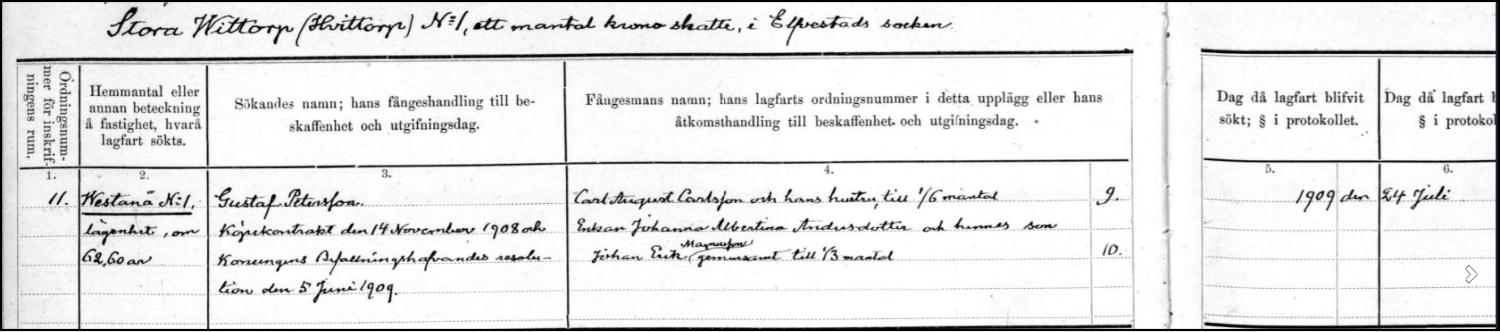 Stora Wittorp (Hvittorp) No 1, ett mantal krono skatte, i Elfvestads socken.
Ordningsnum-
mer för inskrif-
ningens rum.
Hemmantal eller
annan beteckning
å fastighet, hvarå
lagfart sökts.
Sökandes namn; hans fångeshandling till be-
skaffenhet och utgifningsdag.
Fångesmans namn; hans lagfarts ordningsnummer i detta upplägg eller hans
åtkomsthandling till beskaffenhet och utgifningsdag.
Dag då lagfart blifvit
sökt; § i protokollet.
Dag då lagfart b
§ i protokol
1. 2. 3. 4. 5. 6.
11. Westanå No 1,
lägenhet, om
62,60 ar
Gustaf Petersson.
Köpekontrakt den 14 November 1908 och
Konungens Befallningshafvandes resolu-
tion den 5 Juni 1909.
Carl August Carlsson och hans hustru, till 1/6 mantal 9.
Enkan Johanna Albertina Andersdotter och hennes son
Johan Erik Magnusson gemensamt till 1/3 mantal 10.
1909 den 24 Juli